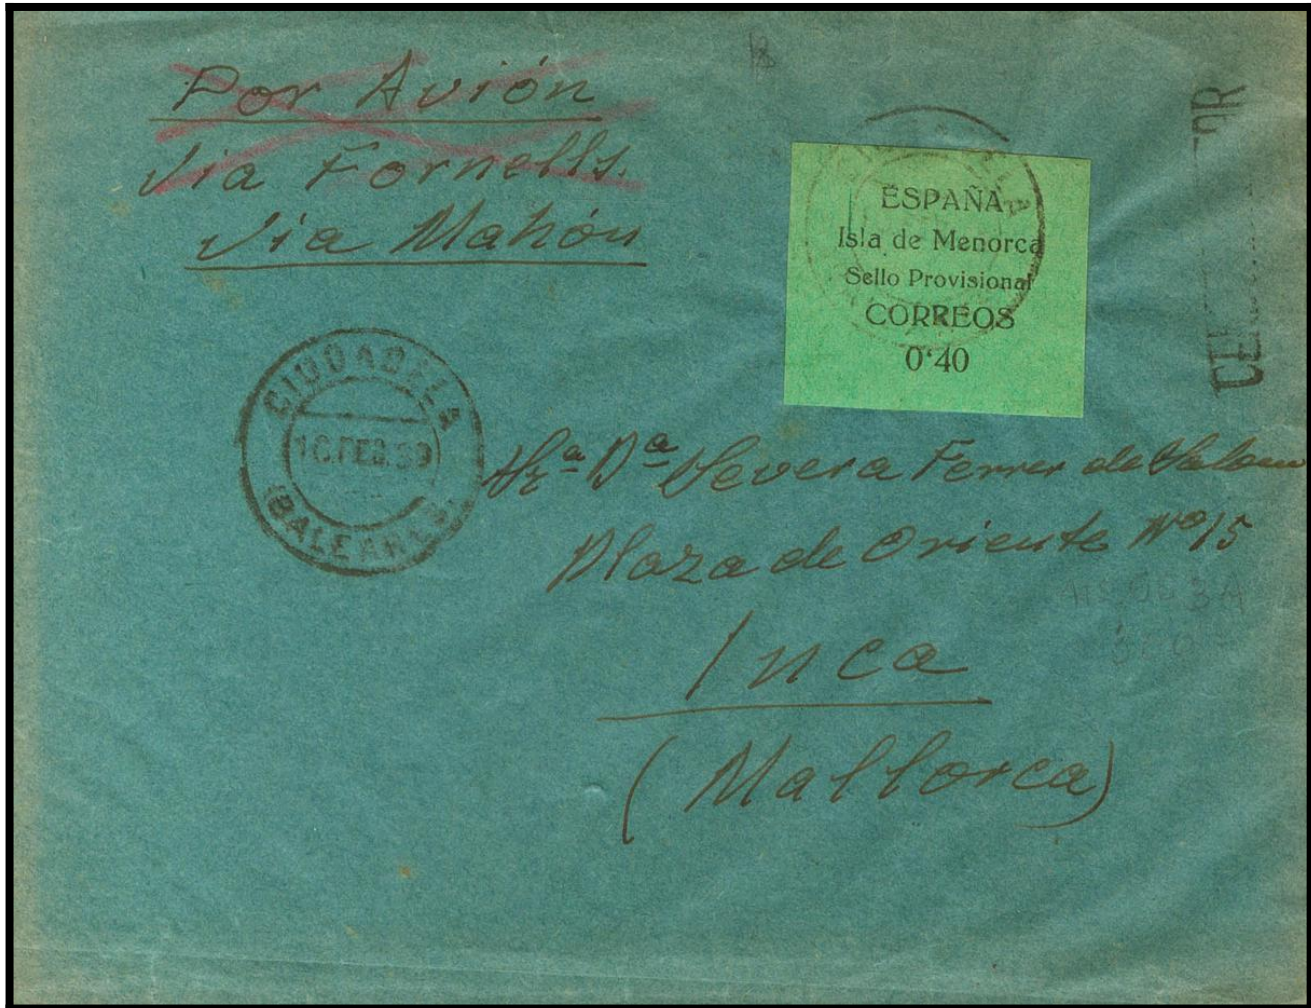 Por Avión
Via Fornells.
Via Mahón
ESPAÑA
Isla de Menorca
Sello Provisional
CORREOS
0'40
CIUDADELA
FEB.39
(BALEARES)
Sra Da Severa Ferrer de
Plaza de Oriente Nº 15
Inca
(Mallorca)